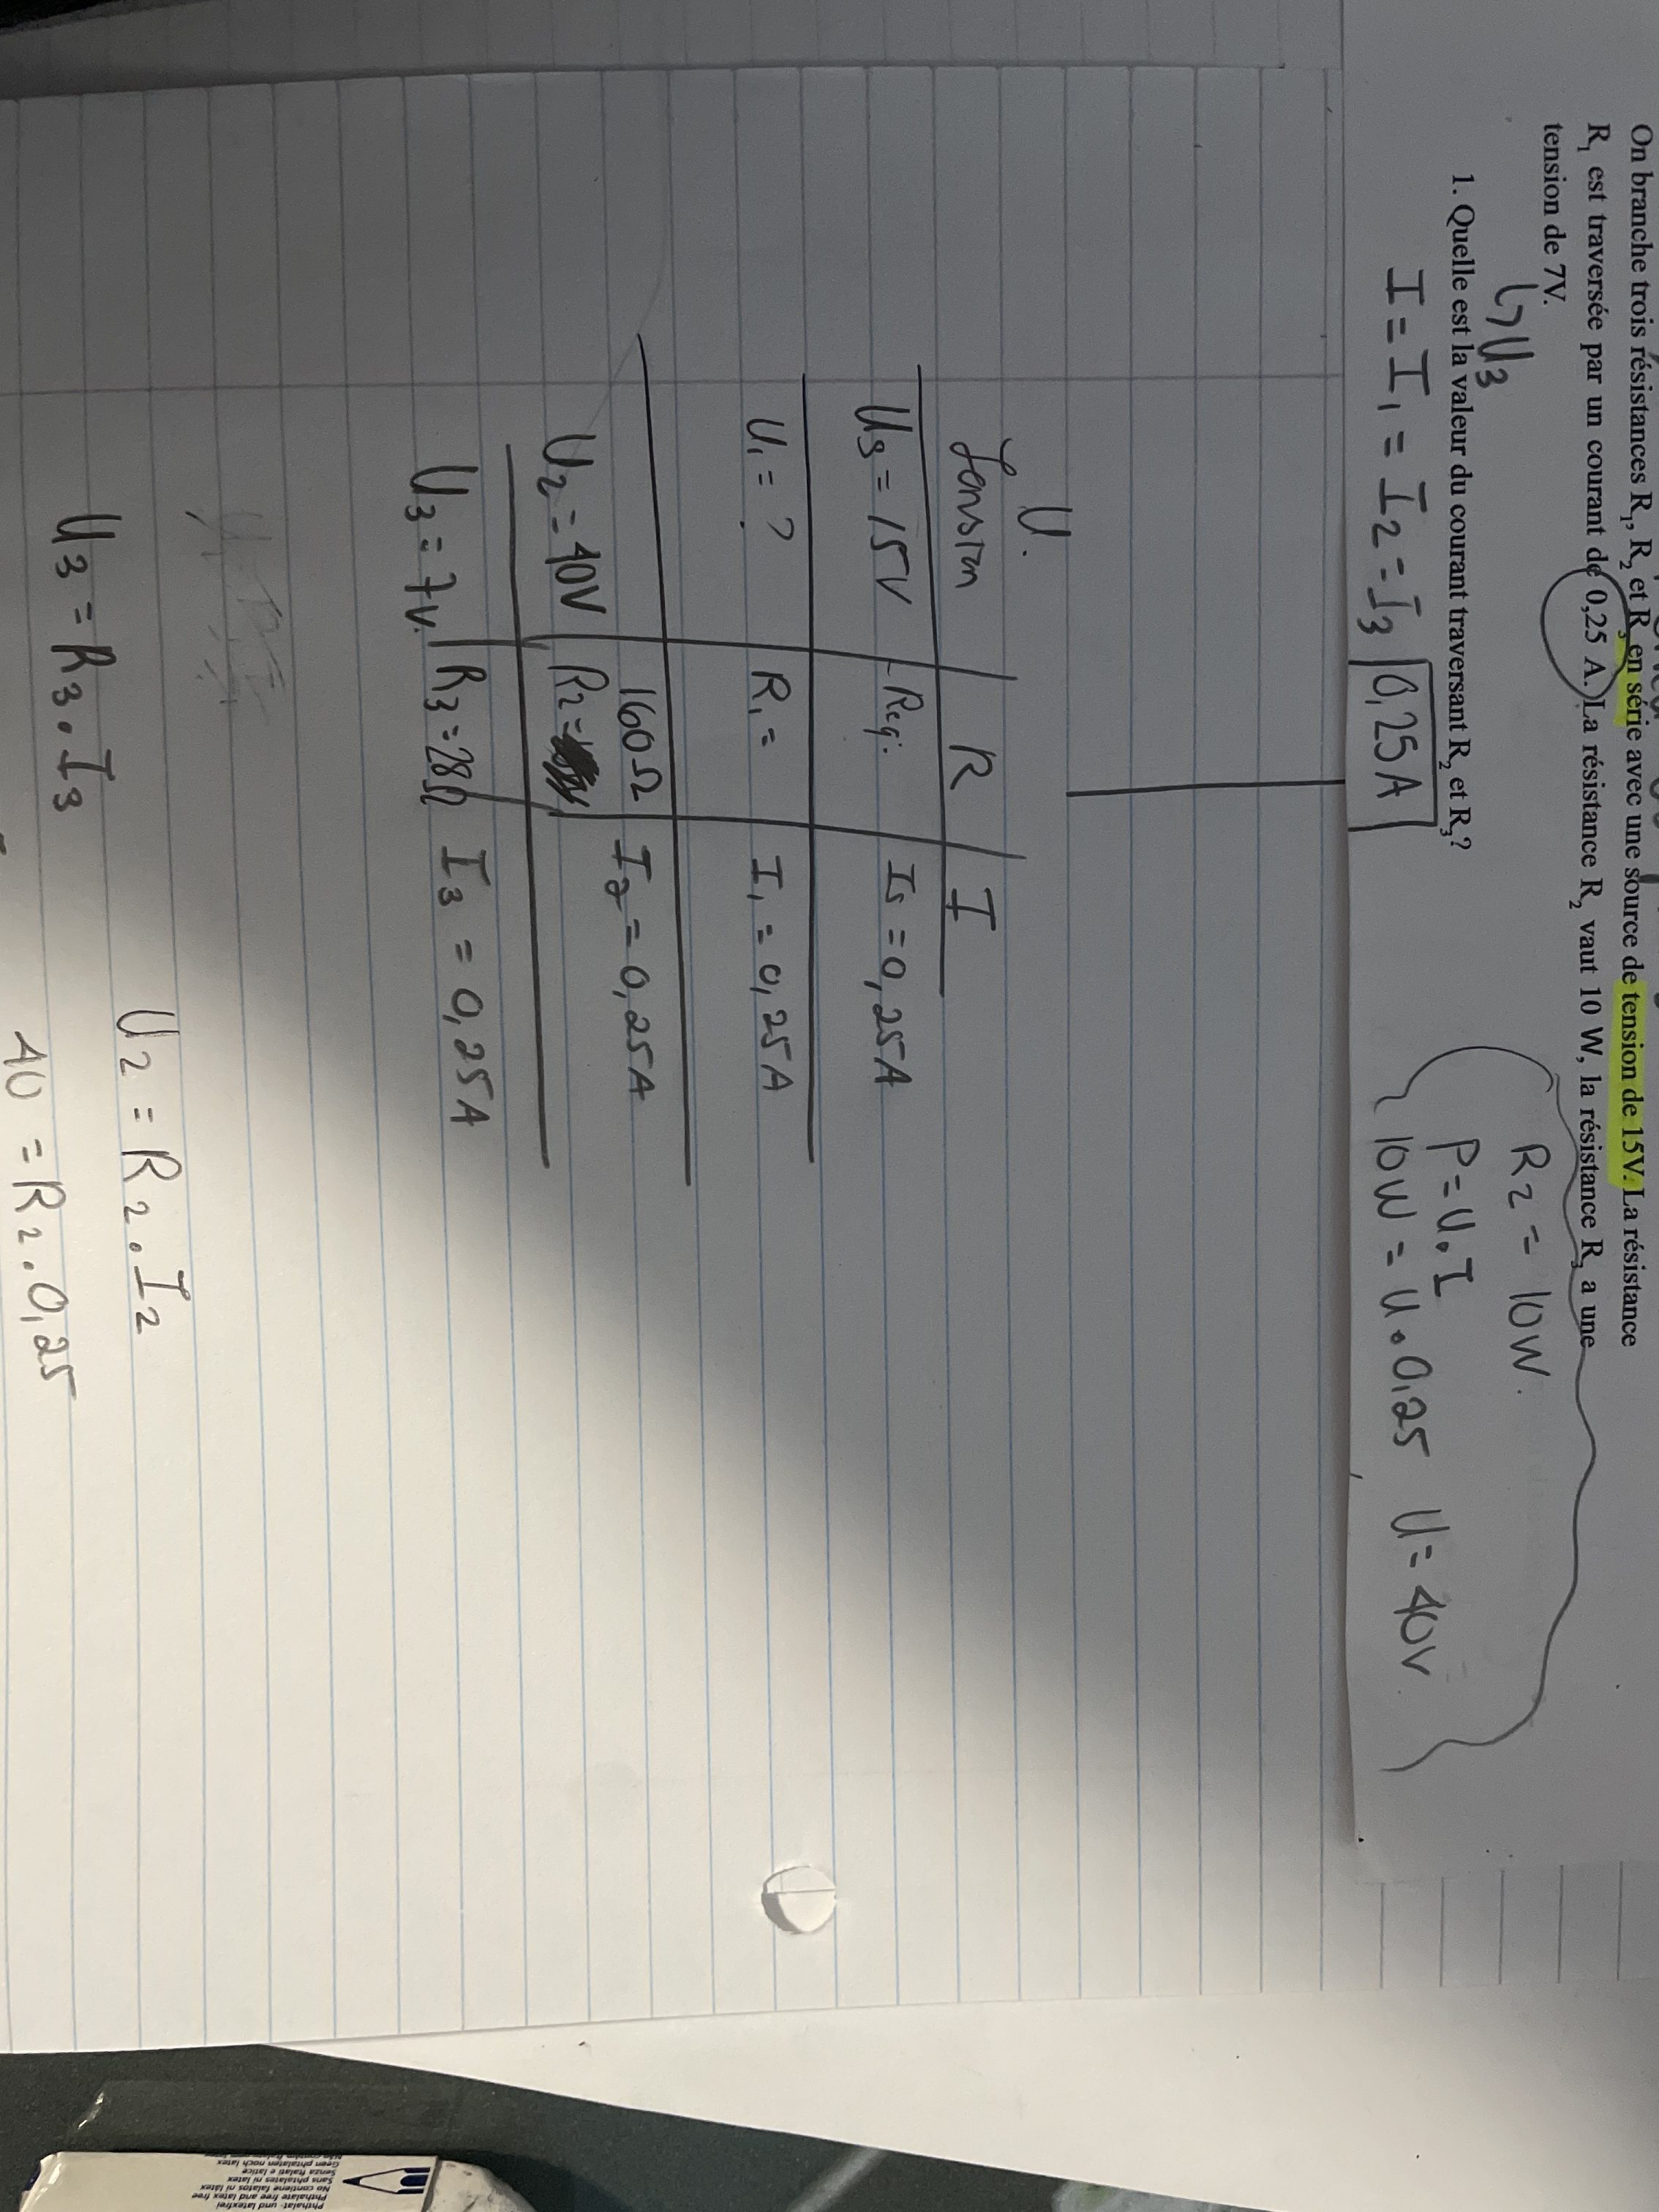 On branche trois résistances R₁, R₂ et R₃ en série avec une source de tension de 15V. La résistance
R₁ est traversée par un courant de 0,25 A. La résistance R₂ vaut 10 W, la résistance R₃ a une
tension de 7V.
↳ U₃
R₂ = 10W.
1. Quelle est la valeur du courant traversant R₂ et R₃?
P = U . I
I = I₁ = I₂ = I₃ 0,25 A
10W = U . 0,25 U = 40V
U. R I
Tension
Us = 15V Req. Is = 0,25A
U₁ = ? R₁ = I₁ = 0,25A
160Ω
U₂ = 40V R₂ = I₂ = 0,25A
U₃ = 7V. R₃ = 28Ω I₃ = 0,25A
U₂ = R₂ . I₂
U₃ = R₃ . I₃
40 = R₂ . 0,25
Phthalat- und latexfrei
Phthalate free and latex free
No contiene ftalatos ni látex
Sans phtalates ni latex
Senza ftalati e lattice
Geen phtalaten noch latex